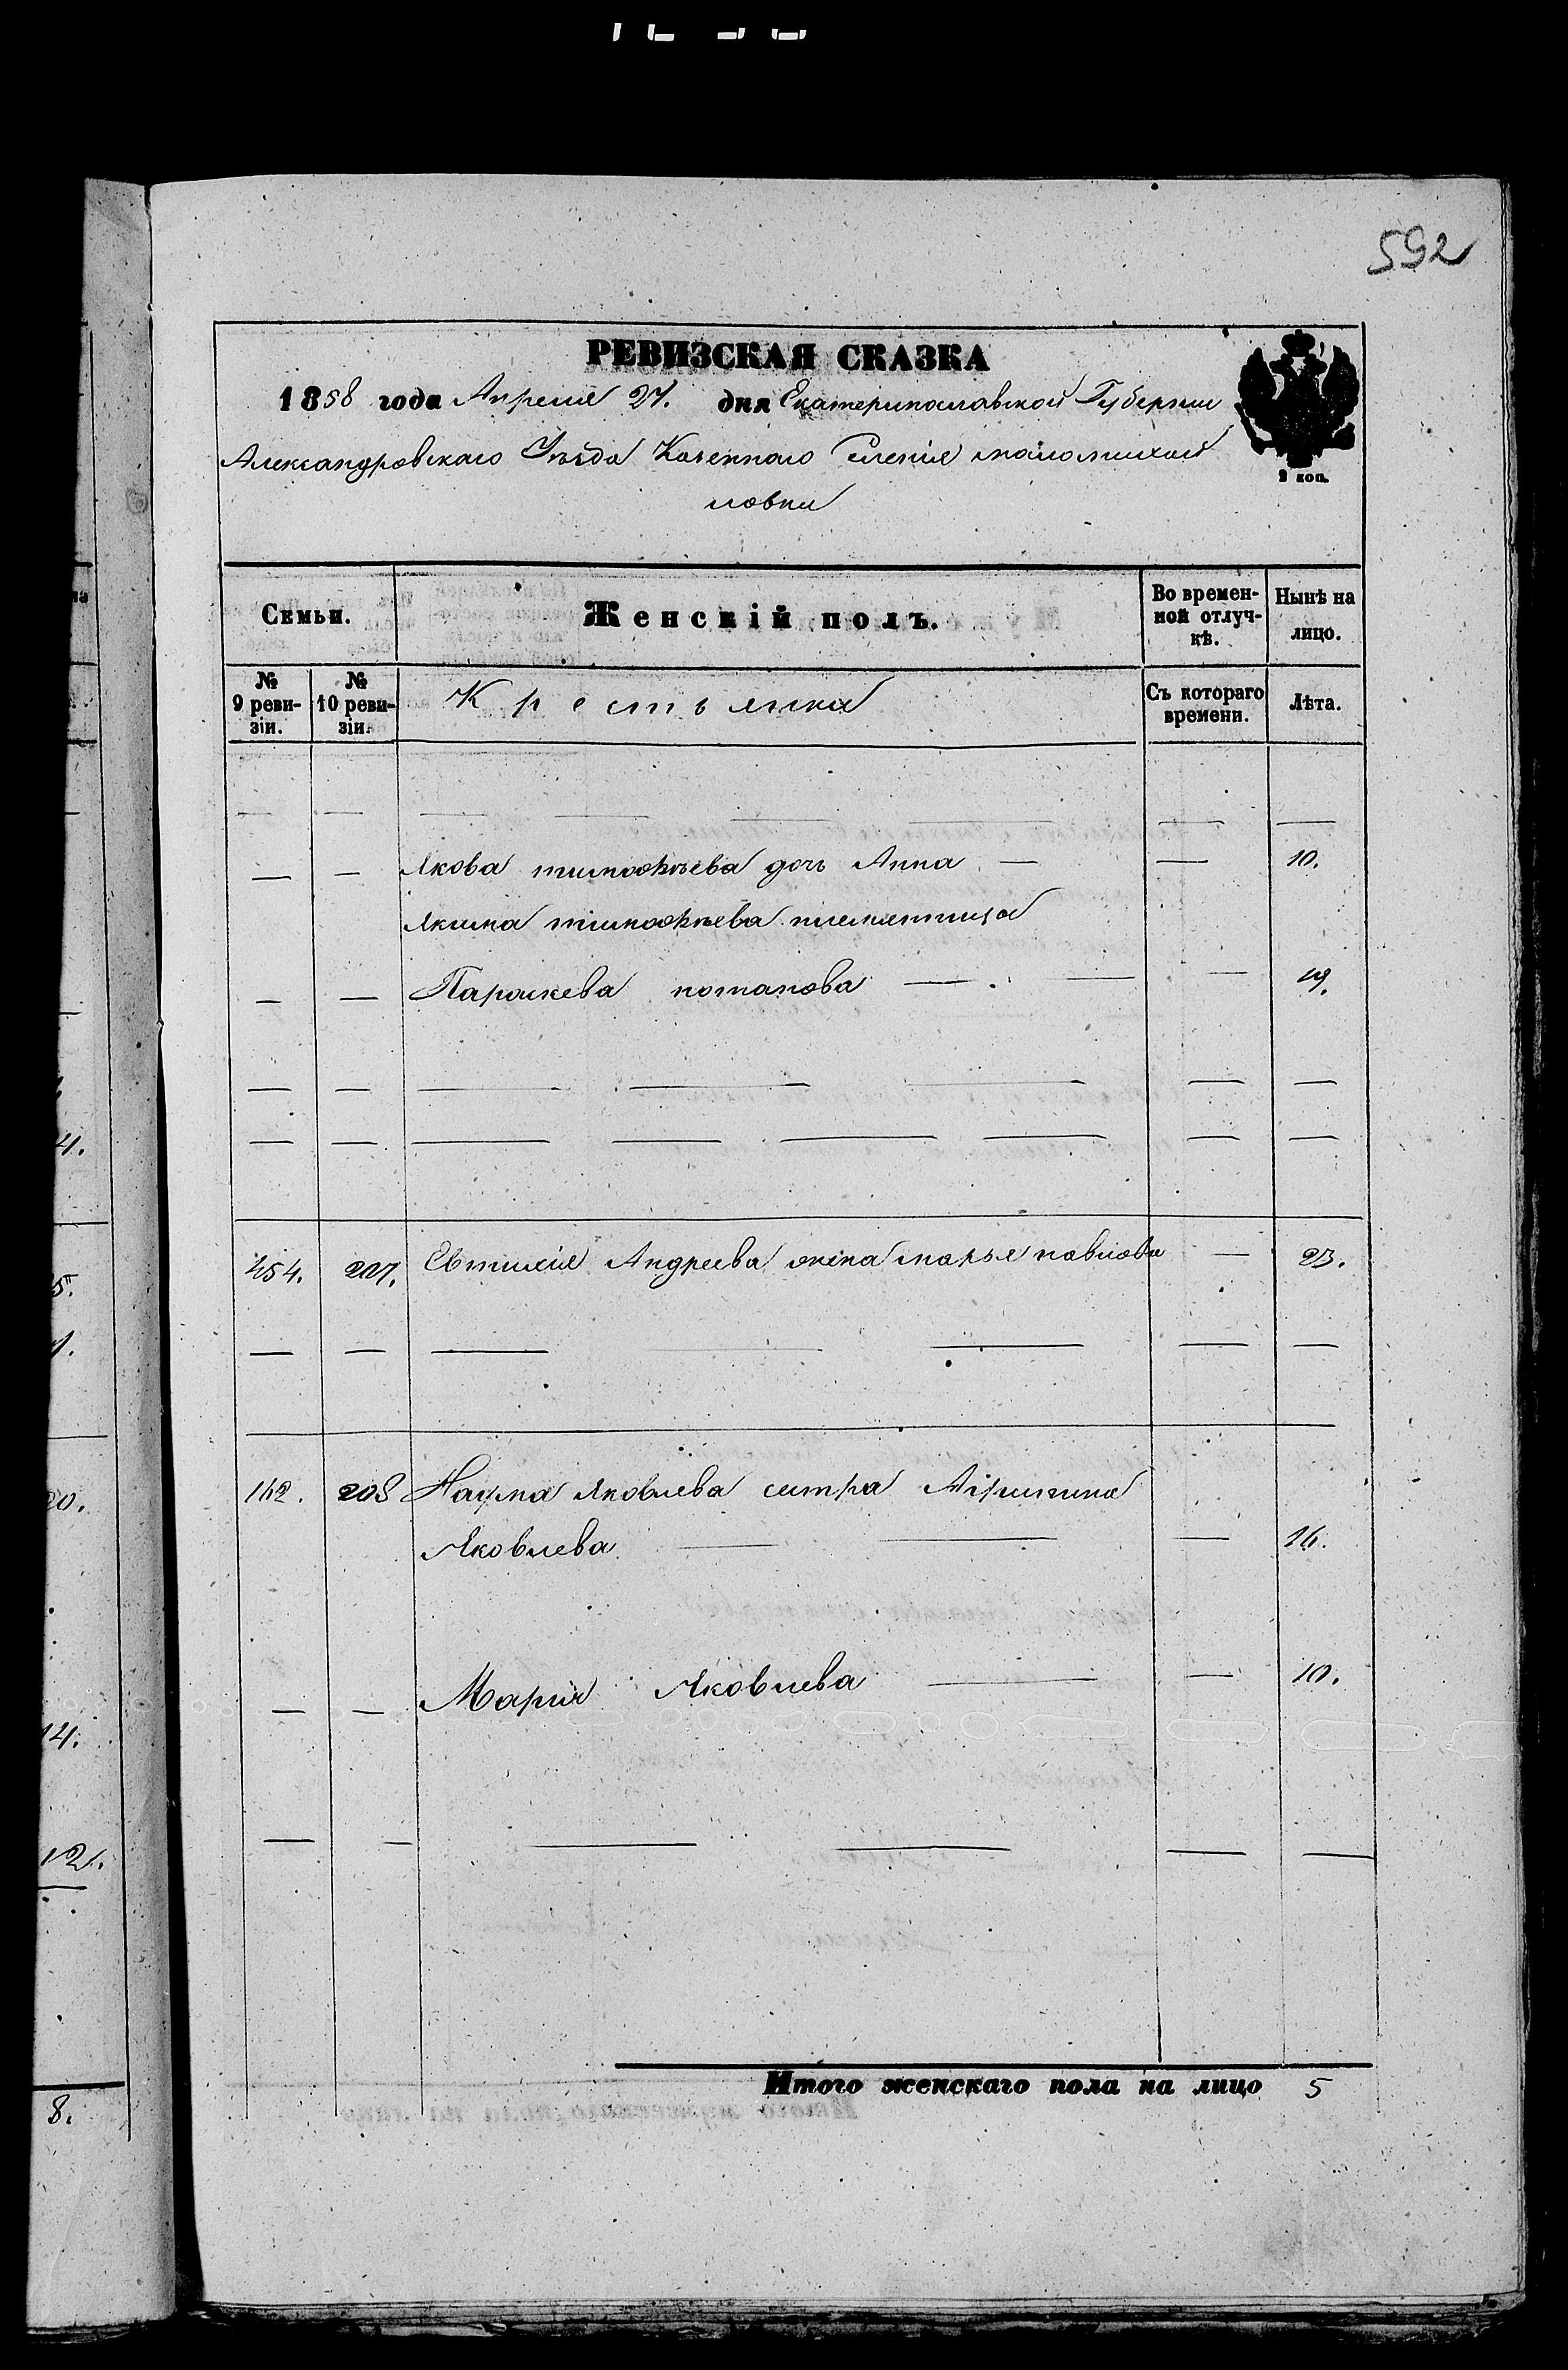 592
РЕВИЗСКАЯ СКАЗКА
1858 года Апреля 27. дня Екатеринославской Губернии
Александровскаго Уѣзда Казеннаго Селенія маломихай
ловки
2 коп.
Семьи. Женскій полъ. Во времен-ной отлуч-кѣ. Нынѣ на лицо.
№ 9 реви-зіи. № 10 реви-зіи. Крестьянка Съ котораго времени. Лѣта.
— — — — — — — —
— — Якова тимофѣева дочь Анна — — 10.
Якима тимофѣева племянница
— — Параскева потапова — — — 19.
— — — — — — —
— — — — — — — —
454. 207. Евтихія Андреева жена марья павлова — 23.
— — — — — — —
162. 208 Наума Яковлева сестра
Яковлева — — — 16.
— — Марія Яковлева — — 10.
— — — — — —
Итого женскаго пола на лицо 5
4.
5.
20.
14.
12.
8.